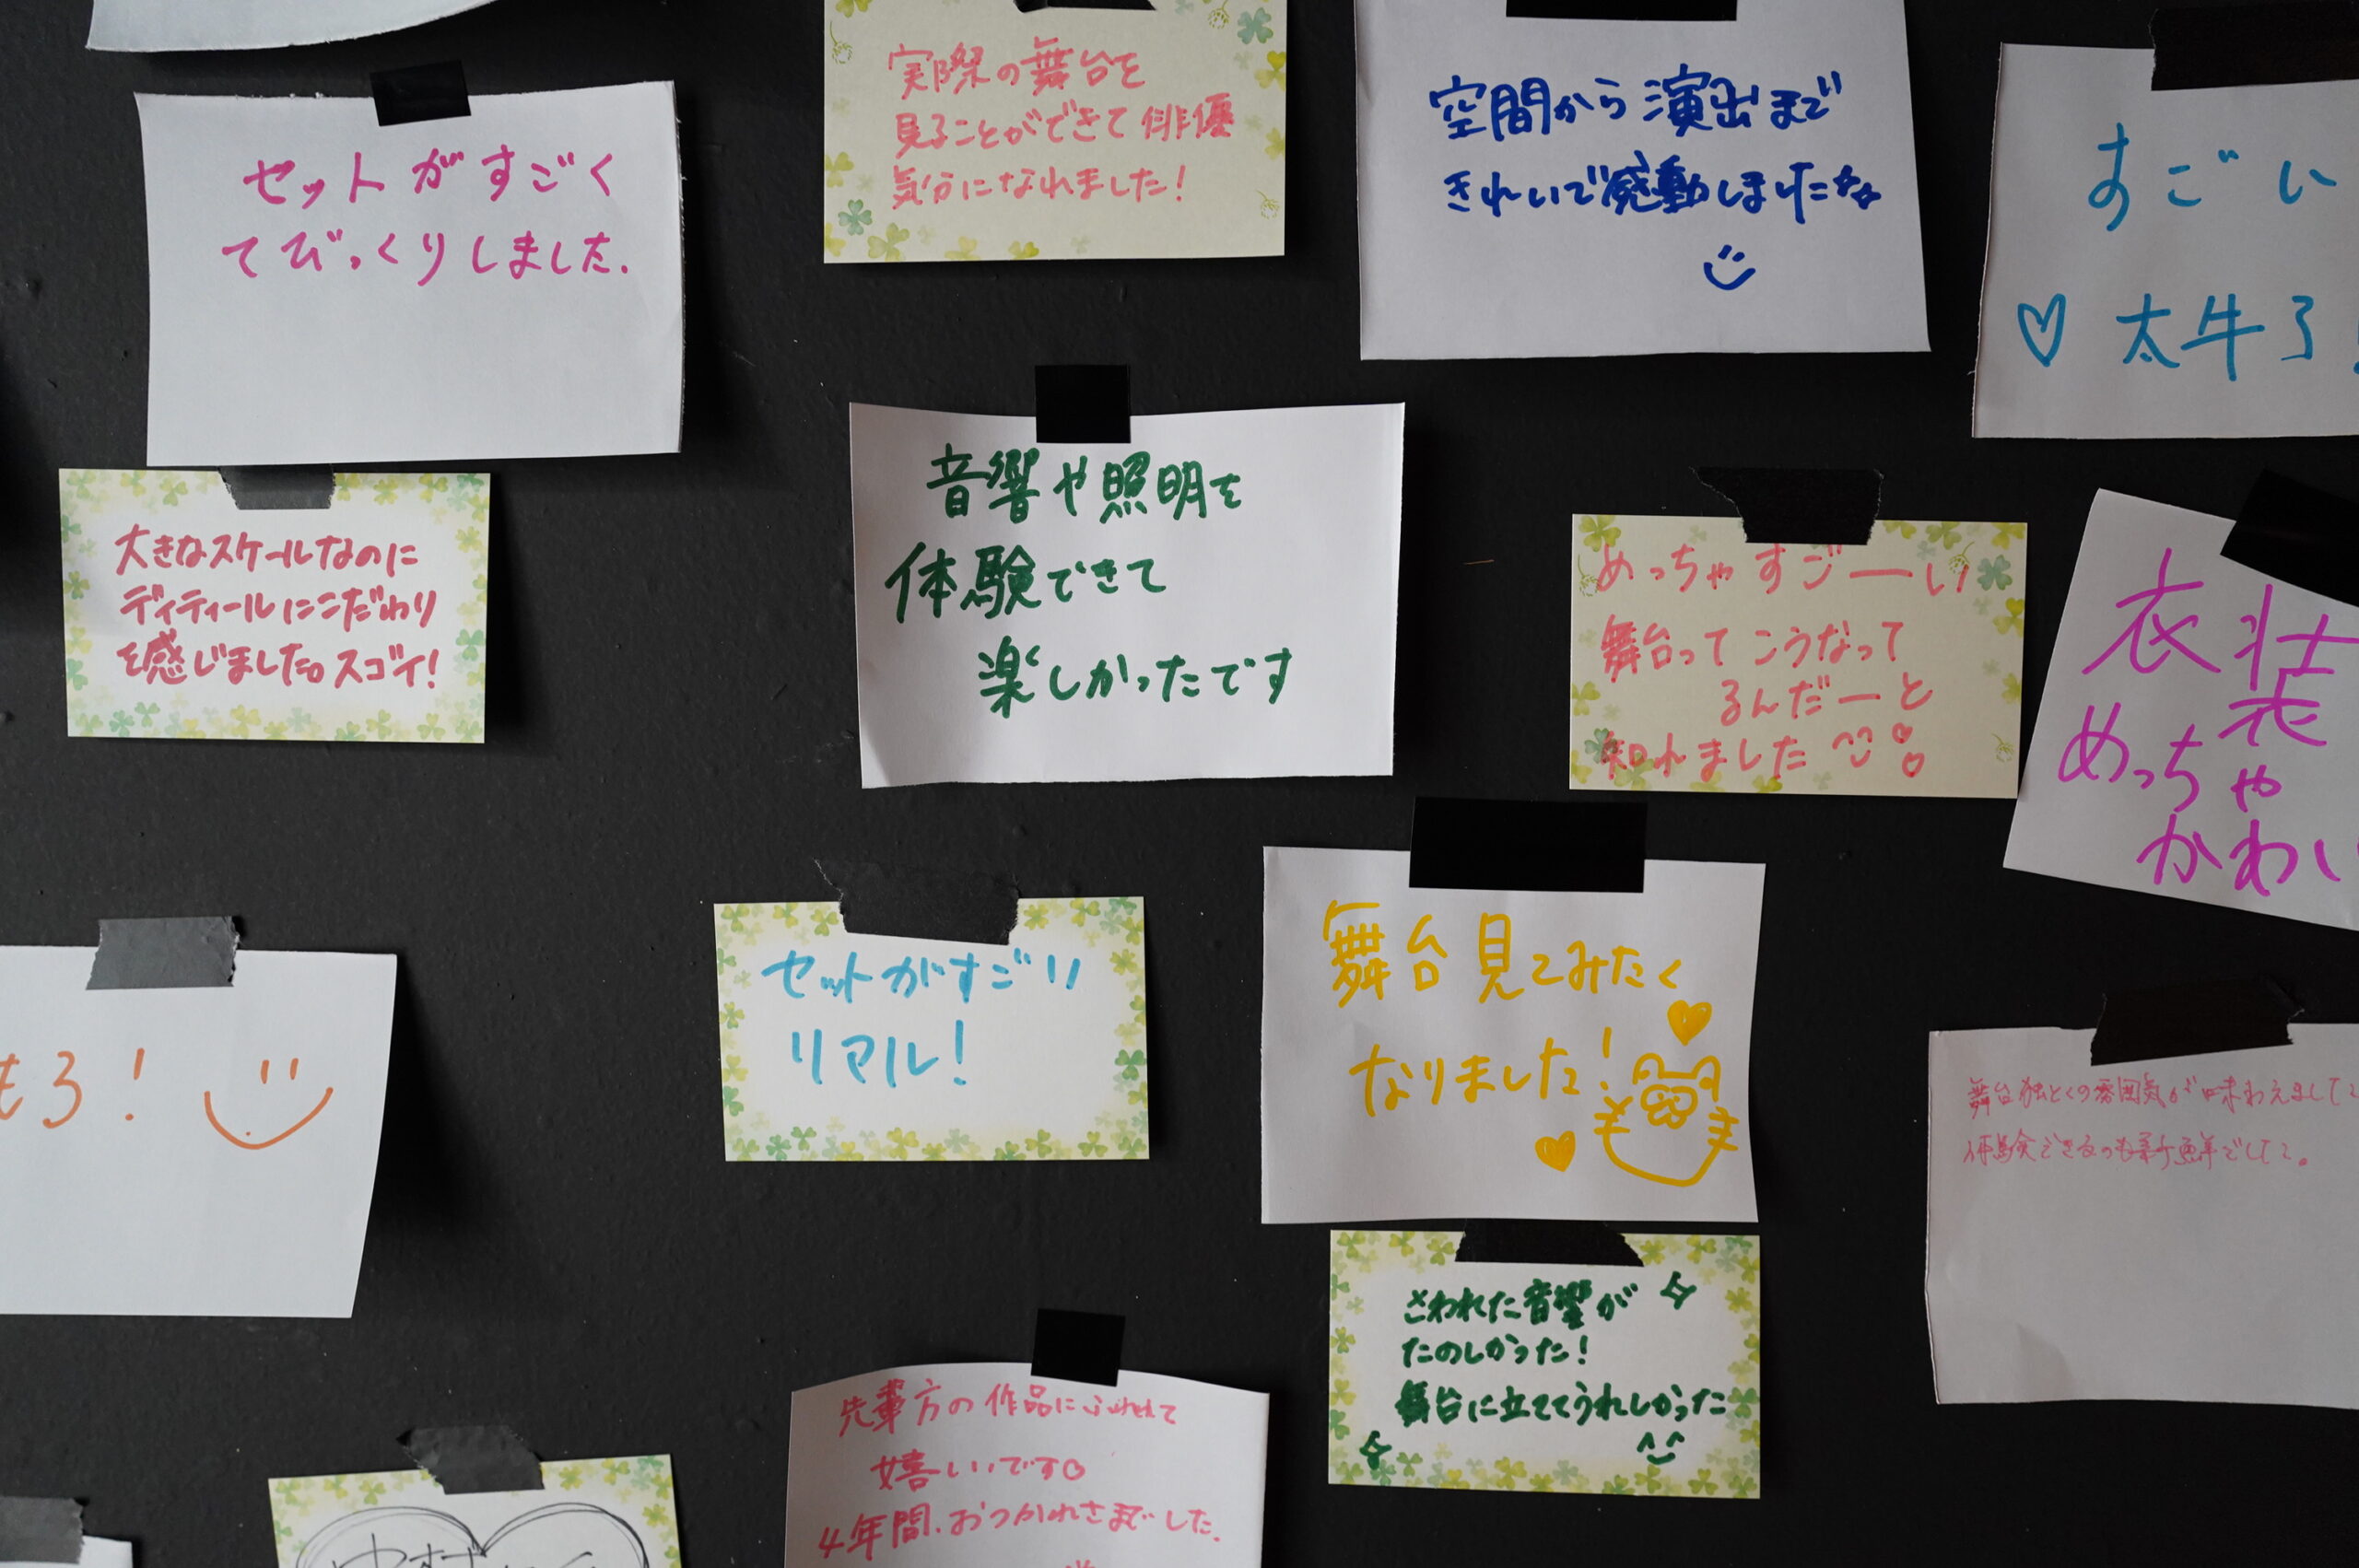 セットがすごく
てびっくりしました.
実際の舞台を
見ることができて俳優
気分になれました!
空間から演出まで
きれいで感動しました
すごい
♡太牛了!
大きなスケールなのに
ディティールにこだわり
を感じました。スゴイ!
音響や照明を
体験できて
楽しかったです
めっちゃすごーい
舞台ってこうなって
るんだーと
知れました
衣装
めっちゃ
かわい
もろ!
セットがすごい
リアル!
舞台見てみたく
なりました!
舞台独とくの雰囲気が味わえました
体験できるのも新鮮でした。
さわれた音響が
たのしかった!
舞台に立ててうれしかった
先輩方の作品にふれれて
嬉しいです♡
4年間、おつかれさまでした.